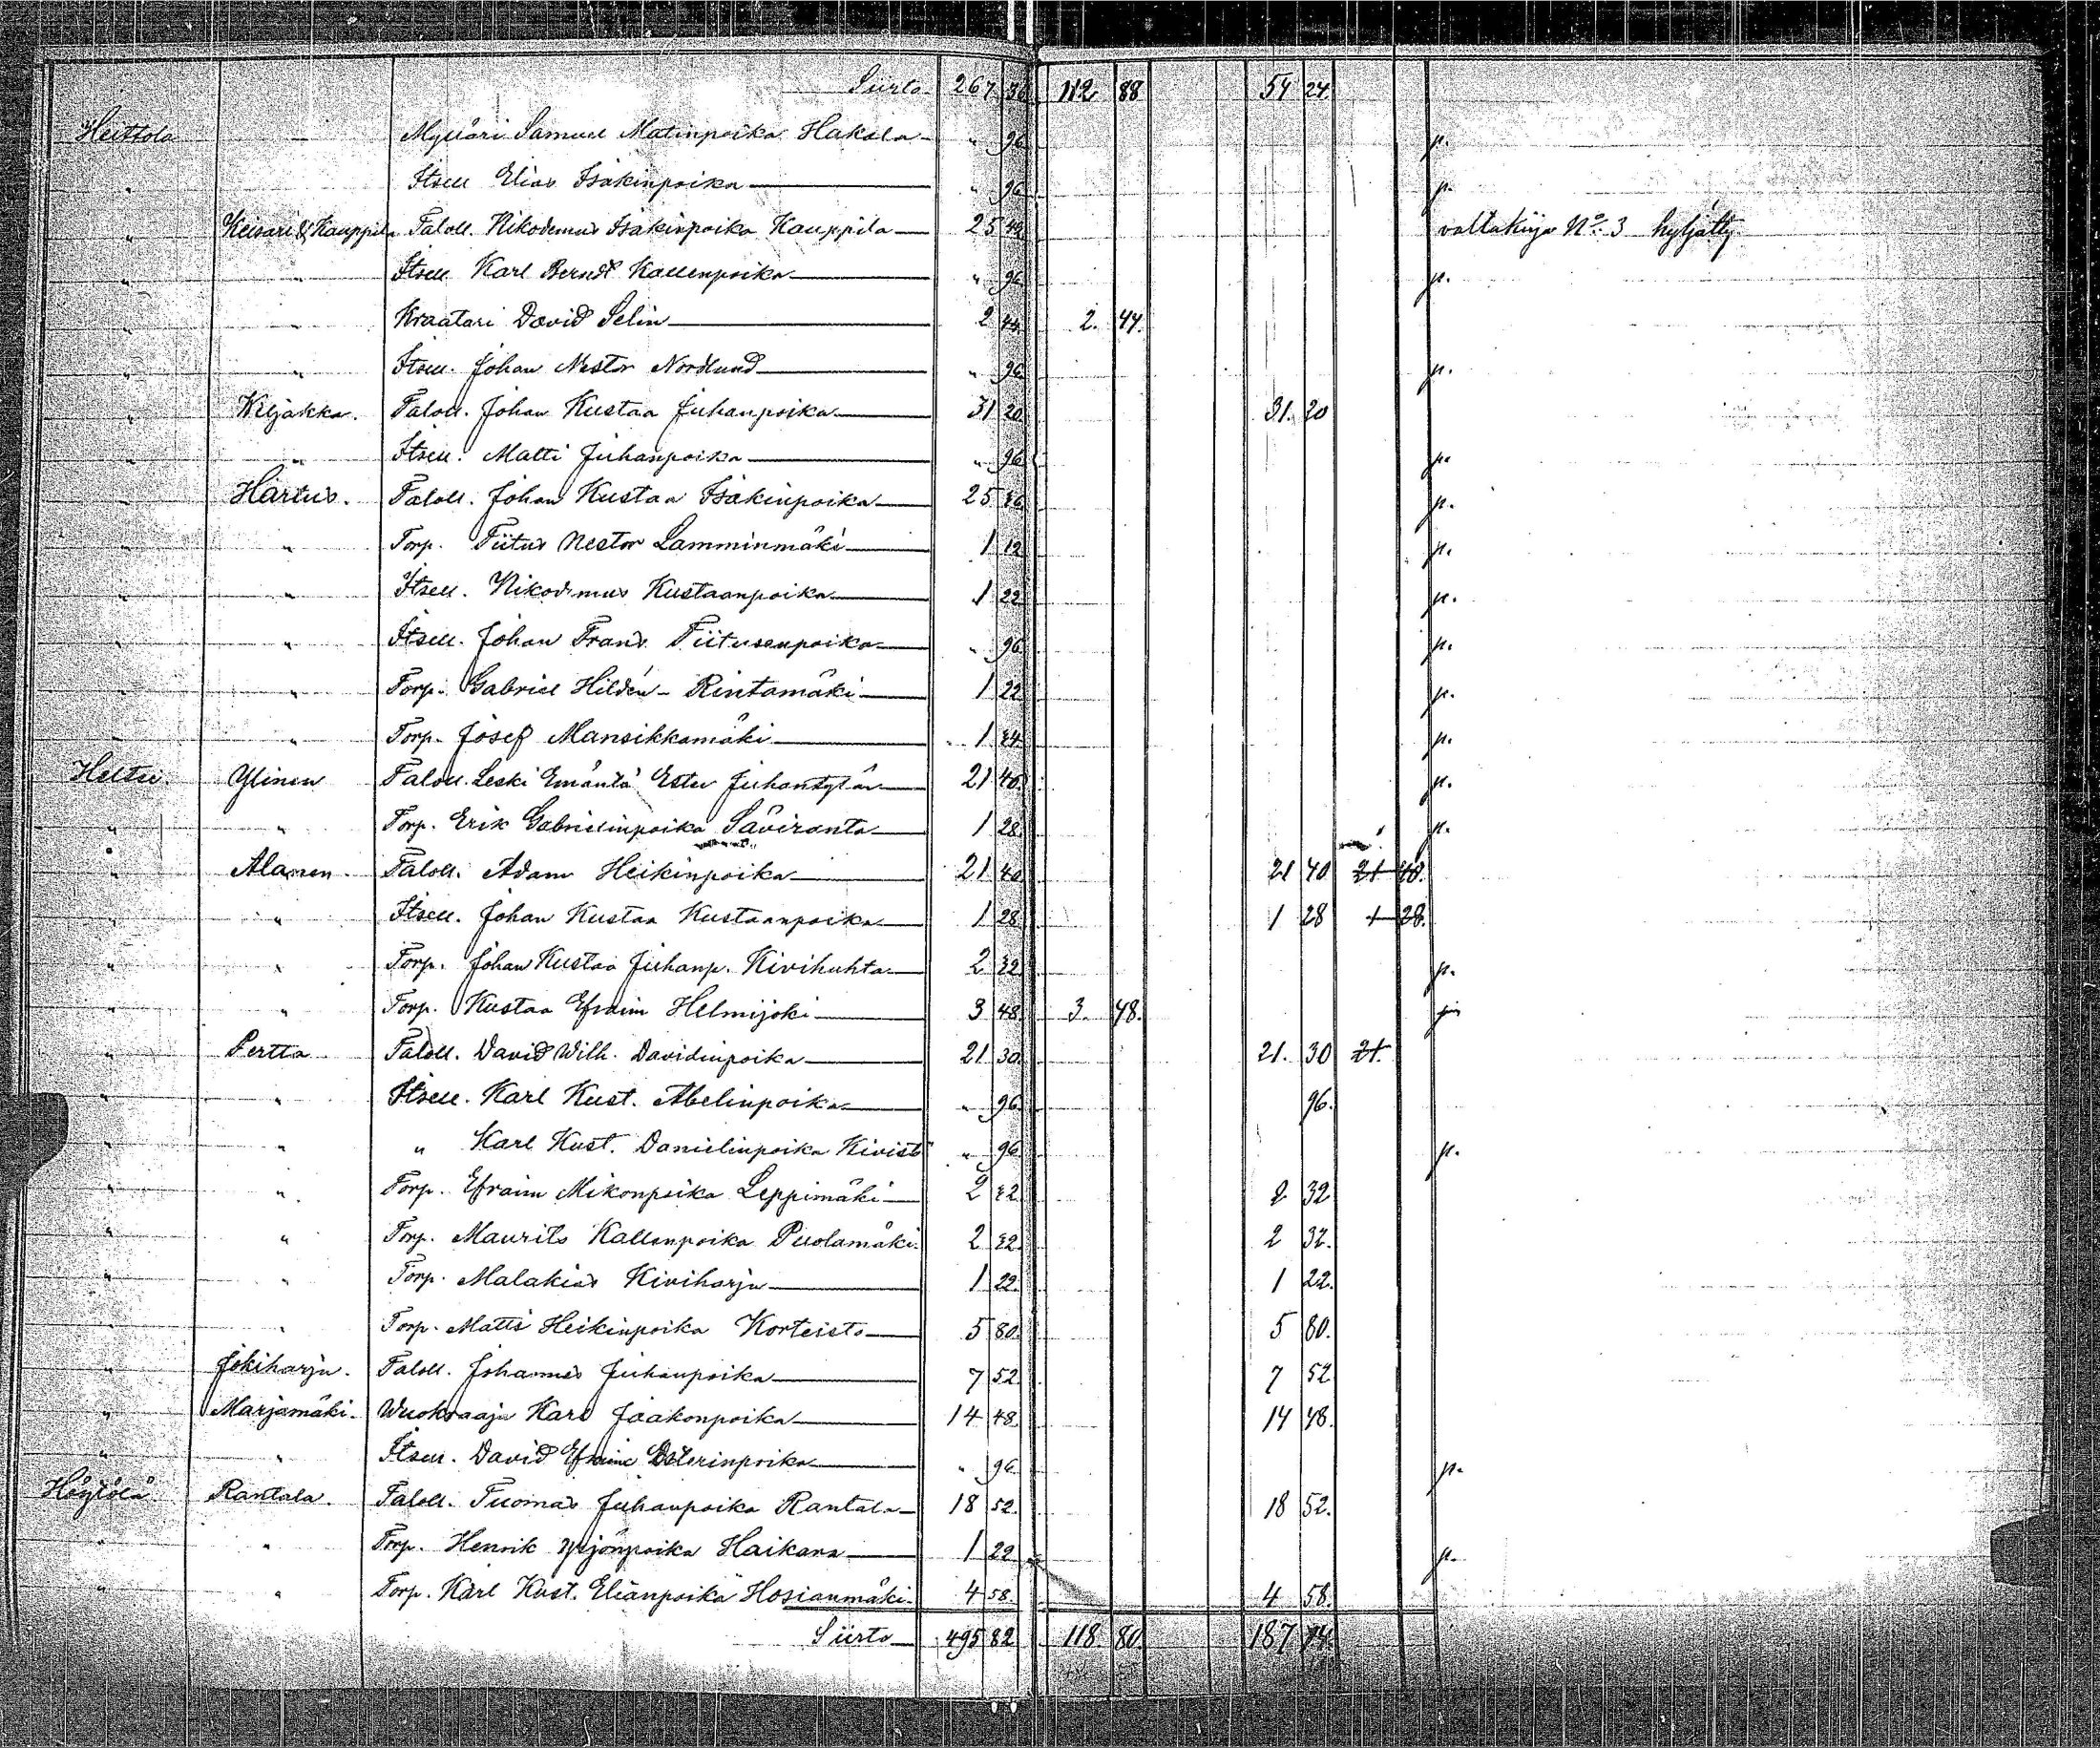 Siirto 267 36 112 88 54 24
Heittola Mylläri Samuel Matinpoika Hakala " 96 p.
" Itsell Elias Isakinpoika " 96 p.
" Keisari & Kauppila Taloll. Nikodemus Isakinpoika Kauppila 25 42 valtakirja No 3 hyljätty.
" " Itsell Karl Bernd Kallenpoika " 96 p.
" " Kraatari David Selin 2 44 2. 44.
" " Itsell. Johan Nestor Nordlund " 96 p.
" Wiljakka. Taloll. Johan Kustaa Juhanpoika 31 20 31. 20
" " Itsell. Matti Juhanpoika " 96 p.
" Härtus. Taloll. Johan Kustaa Isakinpoika 25 p.
" " Torp. Tiitus Nestor Lamminmäki 1 12 p.
" " Itsell. Nikodemus Kustaanpoika 1 22 p.
" " Itsell. Johan Frans Tiitusenpoika " 96 p.
" " Torp. Gabriel Hildén - Rintamäki 1 22 p.
" " Torp. Josef Mansikkamäki 1 24 p.
Heltee. Ylinen Taloll. Leski Emäntä Ester Juhontytär 21 40 p.
" " Torp. Erik Gabrielinpoika Saviranta 1 28 p.
" Alanen. Taloll. Adam Heikinpoika 21 40 21 40 21 40.
" " Itsell. Johan Kustaa Kustaanpoika 1 28 1 28 1 28.
" " Torp. Johan Kustaa Juhanp. Kivihuhta 2 32 p.
" " Torp. Kustaa Efraim Helmijoki 3 48 3. 48.
" Pertta Taloll. David Wilh. Davidinpoika 21 30 21. 30 21.
" " Itsell. Karl Kust. Abelinpoika " 96 96.
" " " Karl Kust. Danielinpoika Kivistö " 96 p.
" " Torp. Efraim Mikonpoika Leppimäki 2 32 2 32
" " Torp. Maurits Kallenpoika Puolamäki. 2 32 2 32.
" " Torp. Malakias Kiviharju 1 22 1 22.
" " Torp. Matti Heikinpoika Korteisto 5 80 5 80.
" Jokiharju. Taloll. Johannes Juhanpoika 7 52 7 52
" Marjamäki. Wuokraaja Karl Jaakonpoika 14 48 14 48.
" " Itsell. David Efraim Esterinpoika " 96 p.
Höytölä Rantala. Taloll. Tuomas Juhanpoika Rantala 18 52 18 52.
" " Torp. Henrik Yrjönpoika Haikara 1 22 p.
" " Torp. Karl Kust. Elianpoika Hosianmäki. 4 58. 4 58.
Siirto 495 82 118 80 187 74